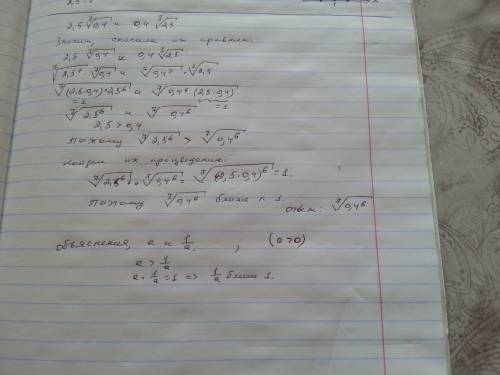 2,5 ⁷√0,4 и 0,4 ⁷√2,5
Значит, сначала их сравним:
2,5 ⁷√0,4 и 0,4 ⁷√2,5
⁷√2,5⁷ · ⁷√0,4 и ⁷√0,4⁷ · ⁷√2,5
⁷√(2,5·0,4)·2,5⁶ и ⁷√0,4⁶·(2,5·0,4)
=1 =1
⁷√2,5⁶ и ⁷√0,4⁶
2,5 > 0,4
Поэтому ⁷√2,5⁶ > ⁷√0,4⁶
Найдем их произведение:
⁷√2,5⁶ · ⁷√0,4⁶ = ⁷√(2,5·0,4)⁶ = 1.
Поэтому ⁷√0,4⁶ ближе к 1.
ответ: ⁷√0,4⁶
объяснения, a и 1/a, (a>0)
a > 1/a
a · 1/a = 1 => 1/a ближе 1.